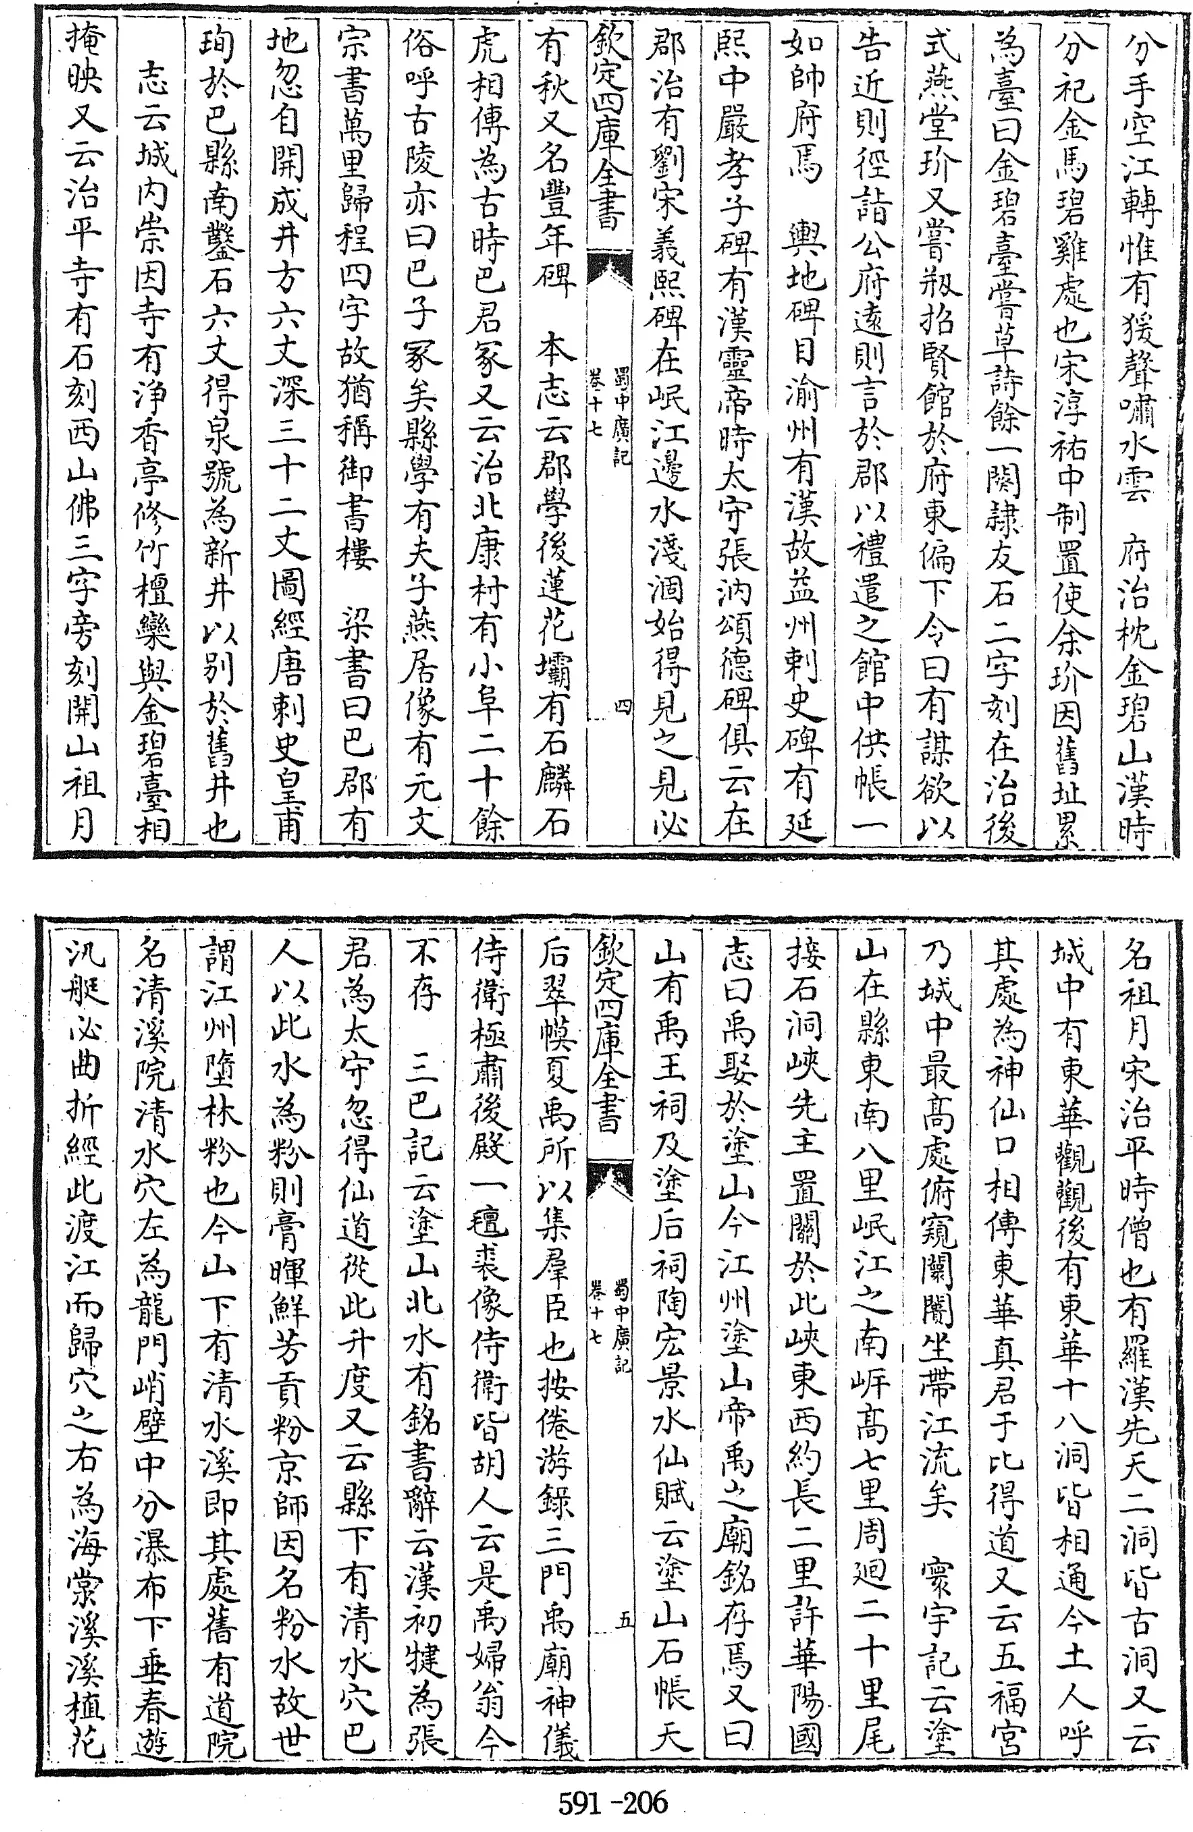 分手空江轉惟有猨聲嘯水雲　府治枕金碧山漢時
分祀金馬碧雞處也宋淳祐中制置使余玠因舊址累
為臺曰金碧臺嘗草詩餘一闋隷友石二字刻在治後
式燕堂玠又嘗剏招賢館於府東偏下令曰有謀欲以
告近則徑詣公府遠則言於郡以禮遣之館中供帳一
如帥府焉　輿地碑目渝州有漢故益州刺史碑有延
熙中嚴孝子碑有漢靈帝時太守張汭頌德碑俱云在
郡治有劉宋義熙碑在岷江邊水淺涸始得見之見必
欽定四庫全書
蜀中廣記
卷十七
四
有秋又名豐年碑　本志云郡學後蓮花壩有石麟石
虎相傳為古時巴君冢又云治北康村有小阜二十餘
俗呼古陵亦曰巴子冢矣縣學有夫子燕居像有元文
宗書萬里歸程四字故猶稱御書樓　梁書曰巴郡有
地忽自開成井方六丈深三十二丈圖經唐刺史皇甫
珣於巴縣南鑿石六丈得泉號為新井以别於舊井也
志云城内崇因寺有浄香亭修竹檀欒與金碧臺相
掩映又云治平寺有石刻西山佛三字旁刻開山祖月
名祖月宋治平時僧也有羅漢先天二洞皆古洞又云
城中有東華觀觀後有東華十八洞皆相通今土人呼
其處為神仙口相傳東華真君于此得道又云五福宮
乃城中最髙處俯窺闤闠坐帶江流矣　寰宇記云塗
山在縣東南八里岷江之南岸髙七里周廻二十里尾
接石洞峽先主置關於此峽東西約長二里許華陽國
志曰禹娶於塗山今江州塗山帝禹之廟銘存焉又曰
山有禹王祠及塗后祠陶宏景水仙賦云塗山石帳天
欽定四庫全書
蜀中廣記
卷十七
五
后翠幙夏禹所以集羣臣也按倦游錄三門禹廟神儀
侍衛極肅後殿一氊裘像侍衛皆胡人云是禹婦翁今
不存　三巴記云塗山北水有銘書辭云漢初犍為張
君為太守忽得仙道從此升度又云縣下有清水穴巴
人以此水為粉則膏暉鮮芳貢粉京師因名粉水故世
謂江州墮林粉也今山下有清水溪即其處舊有道院
名清溪院清水穴左為龍門峭壁中分瀑布下垂春遊
汎艇必曲折經此渡江而歸穴之右為海棠溪溪植花
591-206